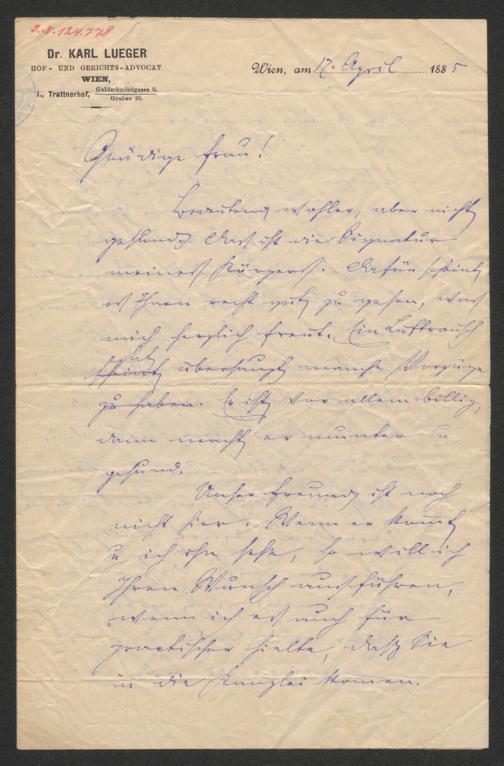 J.N. 124.778
Dr. KARL LUEGER
HOF- UND GERICHTS-ADVOCAT
WIEN,
I., Trattnerhof, Goldschmidgasse 9.
Graben 29.
Wien, am 17. April 1885
Gnädige Frau!
Bedeutend wohler, aber nicht
gesund. Das ist die Signatur
meines Körpers. Dafür scheint
es Ihnen recht gut zu gehen, was
mich herzlich freut. Ein Luftrausch
hat
scheint überhaupt manche Vorzüge
zu haben. Er ist vor allem billig,
dann macht er munter u
gesund.
Unser Freund ist noch
nicht hier. Wenn er kommt
u ich ihn sehe, so will ich
Ihren Wunsch ausführen,
wenn ich es auch für
practischer hielte, daß Sie
in die Kanzlei komen.